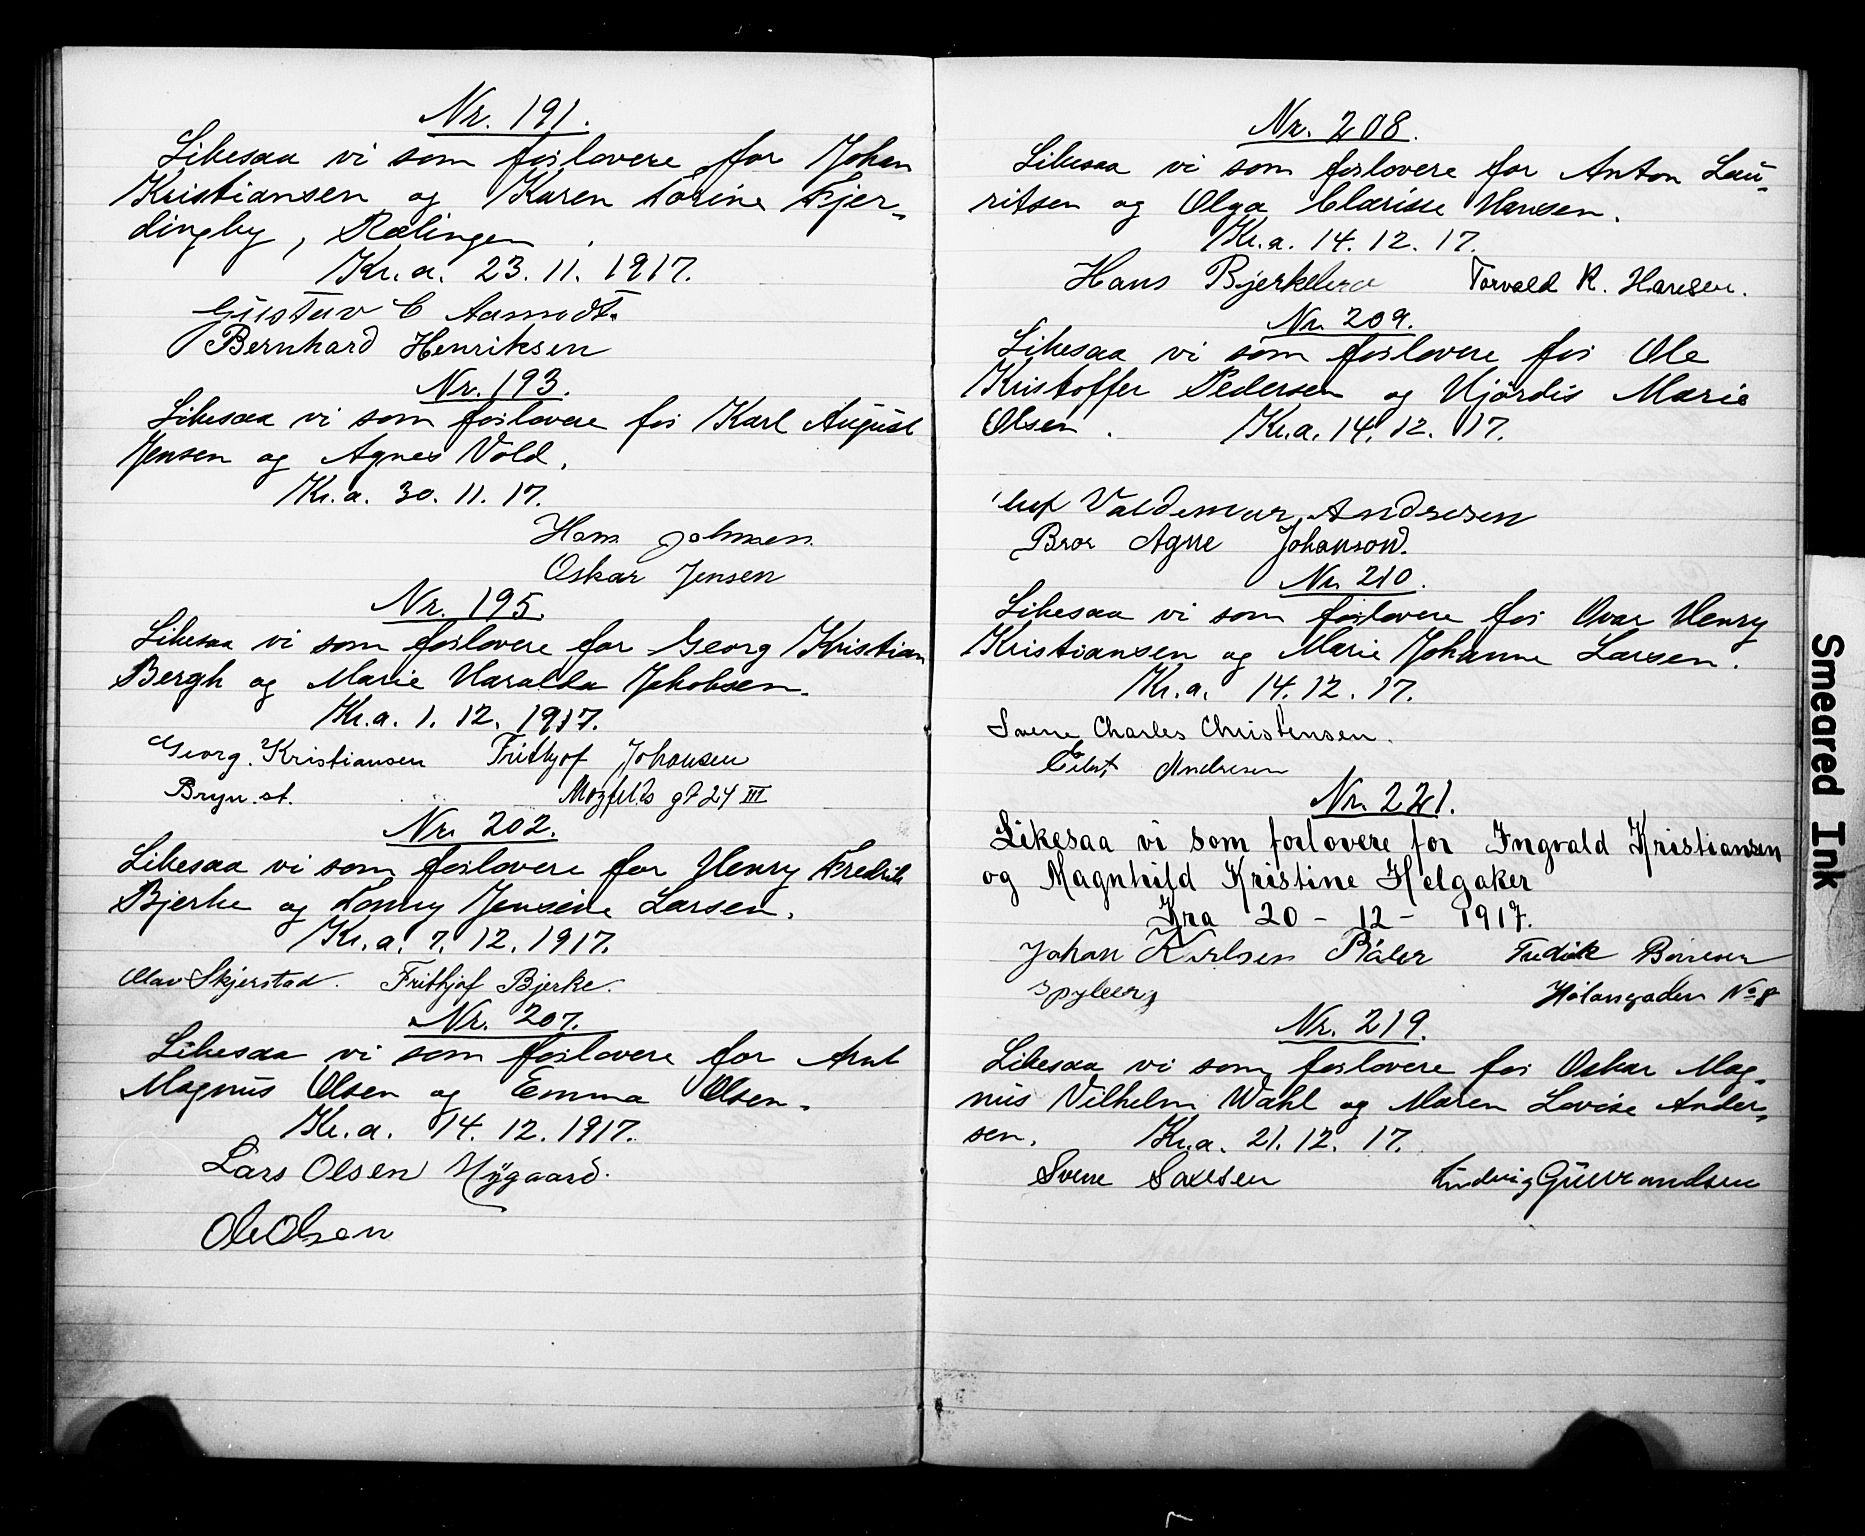 Nr. 191.
Likesaa vi som forlovere for Johan
Kristiansen og Karen Torine Fjer-
dingby, Rælingen.
Kr.a. 23. 11. 1917.
Gustav C Aamodt.
Bernhard Henriksen
Nr. 193.
Likesaa vi som forlovere for Karl August
Jensen og Agnes Vold.
Kr.a. 30. 11. 17.
Hans Johnsen
Oskar Jensen
Nr. 195.
Likesaa vi som forlovere for Georg Kristian
Bergh og Marie Haralda Jakobsen.
Kr.a. 1. 12. 1917.
Georg. Kristiansen Frithjof Johansen
Bryn. st. gt 24 III
Nr. 202.
Likesaa vi som forlovere for Henry Fredrik
Bjerke og Jensine Larsen.
Kr.a. 7. 12. 1917.
Olav Skjerstad. Frithjof Bjerke.
Nr. 207.
Likesaa vi som forlovere for Arnt
Magnus Olsen og Emma Olsen.
Kr.a. 14. 12. 1917.
Lars Olsen Nygaard.
Ole Olsen
Nr. 208.
Likesaa vi som forlovere for Anton Lau-
ritsen og Olga Clarisse Hansen.
Kr.a. 14. 12. 17.
Hans Torvald R. Hansen.
Nr. 209.
Likesaa vi som forlovere for Ole
Kristoffer Pedersen og Hjördis Marie
Olsen. Kr.a. 14. 12. 17.
Valdemar Andresen
Bror Agne Johanson.
Nr. 210.
Likesaa vi som forlovere for Ovar Henry
Kristiansen og Marie Johanne Larsen.
Kr.a. 14. 12. 17.
Charles Christensen.
Andresen
Nr. 221.
Likesaa vi som forlovere for Ingvald Kristiansen
og Magnhild Kristine Helgaker
Kra 20 - 12 - 1917.
Johan Karlsen
No 8
Nr. 219.
Likesaa vi som forlovere for Oskar Mag-
nus Vilhelm Wahl og Maren Lovise Ander-
sen. Kr.a. 21. 12. 17.
Ludvig
Smeared Ink